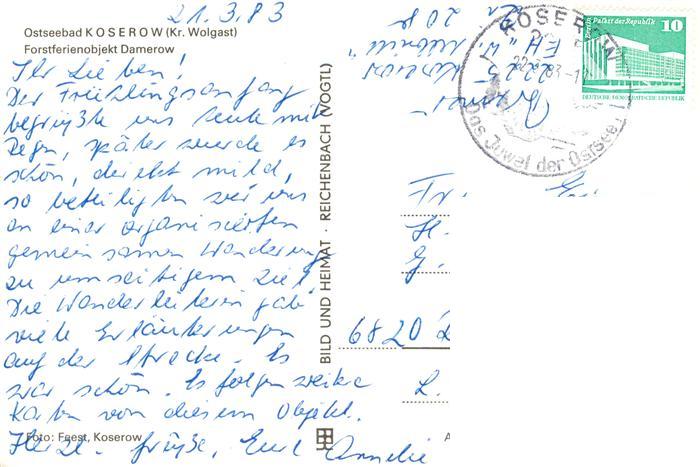 21.3.83
Ostseebad KOSEROW (Kr. Wolgast)
Forstferienobjekt Damerow
Ihr Lieben!
Der Frühlingsanfang
begrüßte uns heute mit
Regen, später wurde es
schön, direkt mild,
so beteiligten wir uns
an einer organisierten
gemeinsamen Wanderung
zu umseitigem Ziel.
Die Wanderleiterin gab
viele Erläuterungen
auf der Strecke. Es
war schön. Es folgen weitere
Karten von diesem Objekt.
Foto: Feest, Koserow
Herzl. Grüße, Eure Annelie
BILD UND HEIMAT · REICHENBACH (VOGTL)
KOSEROW
Das Juwel der Ostsee
Palast der Republik
10
DEUTSCHE DEMOKRATISCHE REPUBLIK
2225
Fr.
H.
G.
6820